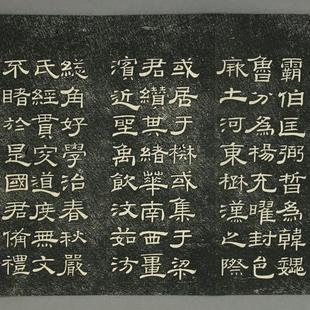 霸伯匡弼晉為韓魏
魯分為楊充曜封邑
厥土河東楚漢之際
或居于楚或集于梁
君纘其緒華南西畺
濱近聖禹飲汶茹汸
總角好學治春秋嚴
氏經貫究道度無文
不睹於是國君備禮